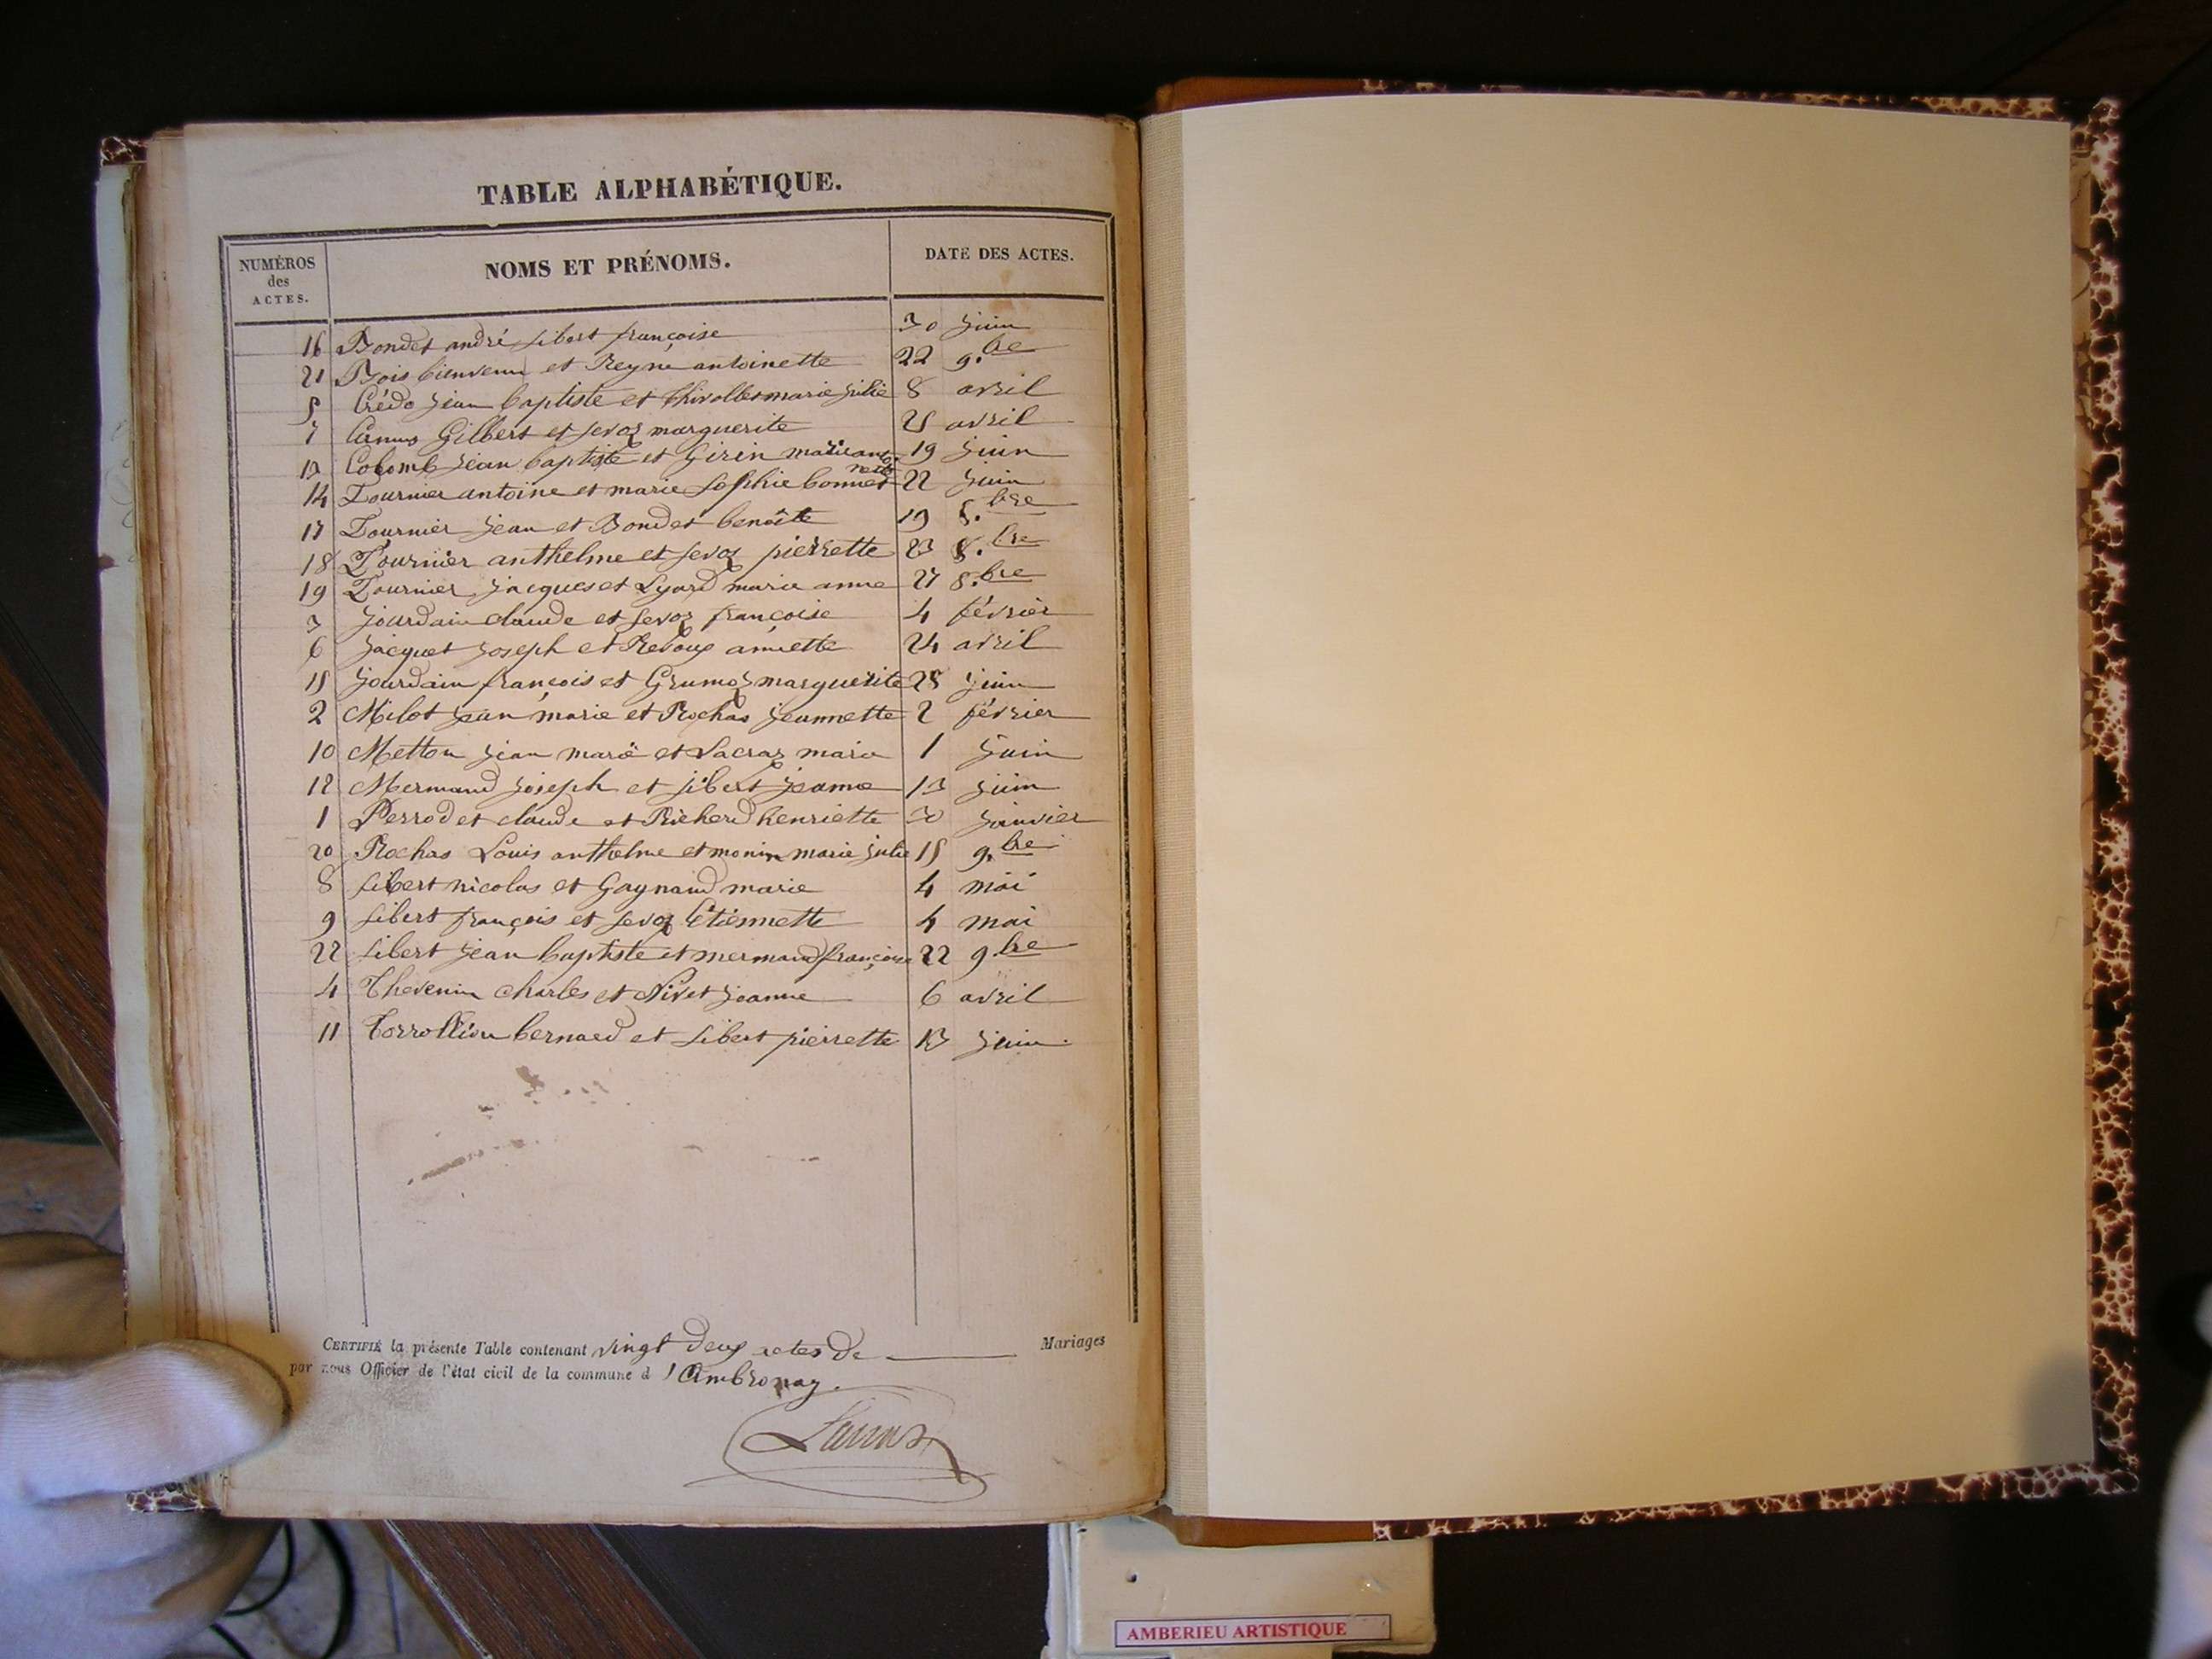 TABLE ALPHABÉTIQUE.
NUMÉROS des ACTES. NOMS ET PRÉNOMS. DATE DES ACTES.
16 Bondet andré Sibert françoise 30 juin
21 Bois bienvenu et Reyne antoinette 22 9.bre
5 Crédo jean baptiste et Thivollet marie julie 8 avril
7 Camus Gilbert et Sevoz marguerite 25 avril
13 Colomb jean baptiste et Girin marie antoinette 19 juin
14 Fournier antoine et marie Sophie bonnet 22 juin
17 Fournier jean et Bondet benoîte 19 8.bre
18 Fournier anthelme et Sevoz pierrette 23 8.bre
19 Fournier jacques et Lyard marie anne 27 8.bre
3 jourdain claude et Sevoz françoise 4 février
6 jacquet joseph et Reboux 24 avril
15 jourdain françois et Grumoz marguerite 25 juin
2 Milot jean marie et Rochas jeannette 2 février
10 Metton jean marie et Lacraz marie 1 juin
12 Mermand joseph et Sibert jeanne 13 juin
1 Perrodet claude et Richerd henriette 30 janvier
20 Rochas Louis anthelme et monin marie julie 15 9.bre
8 Sibert nicolas et Gaynand marie 4 mai
9 Sibert françois et Sevoz Etiennette 4 mai
22 Sibert jean baptiste et mermand françoise 22 9.bre
4 Thevenin charles et Nivet jeanne 6 avril
11 Torrollion bernard et Sibert pierrette 13 juin.
CERTIFIÉ la présente Table contenant vingt deux actes de Mariages
par nous Officier de l'état civil de la commune d'Ambronay.
AMBERIEU ARTISTIQUE